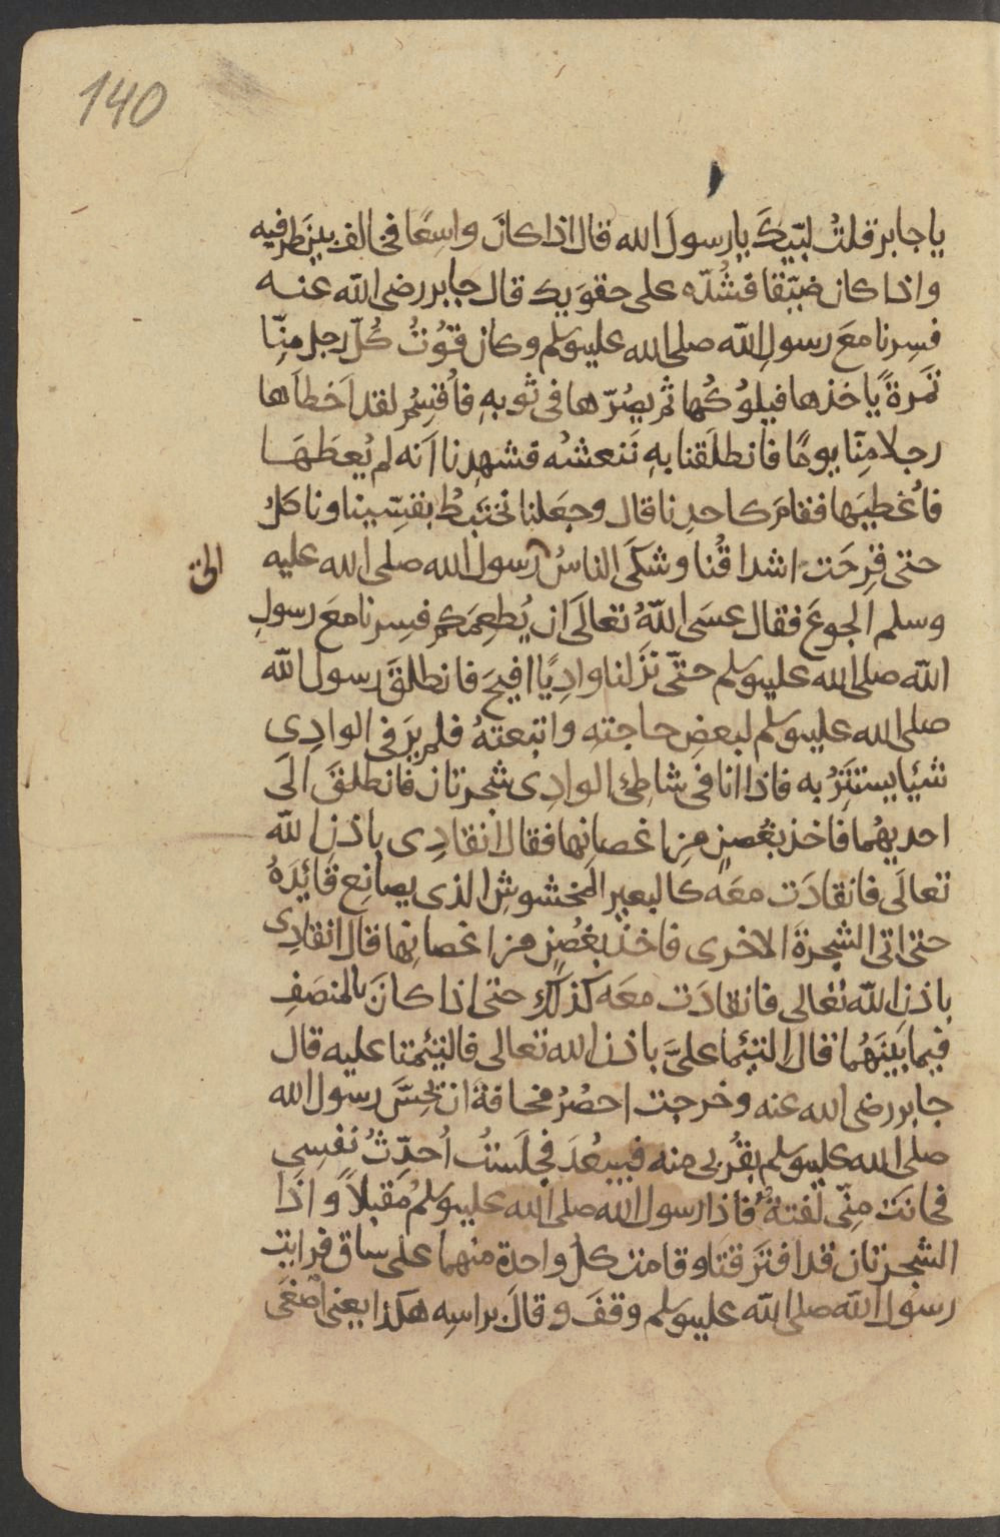 140
يا جابر قلتُ لبّيكَ يا رسولَ الله قال اذا كانَ واسِعًا فخالف بين طرفيه
واذا كان ضيّقا فشُدّه على حقوَيك قال جابر رضى الله عنه
فسِرنا معَ رسولِ الله صلى الله عليه وسلم وكان قوُتُ كُلّ رجل مِنّا
تمرةً ياخذها فيلوُكُها ثم يصُرّها فى ثوبهِ فاُقسِمُ لقد اَخطاَها
رجلا مِنّا يومًا فانطلَقنا بهِ نَنعشُه فشهِدنا اَنه لم يُعطَهَا
فاُعطيَها فقامَ كاحدِنا قال وجعَلنا نختَبطُ بقسِّينا وناكلُ
حتى قرِحَت اشداقُنا وشكَى الناسُ رسول الله صلى الله عليه
الى
وسلم الجوعَ فقال عسَى اللهُ تعالَى ان يُطعِمَكم فسِرنا معَ رسولِ
الله صلى الله عليه وسلم حتّى نزَلنا وادِيًا افيحَ فانطلقَ رسول الله
صلى الله عليه وسلم لبعضِ حاجتهِ واتبعتهُ فلم يرَ فى الوادِى
شيًا يستتِرُ به فاذا انا فى شاطِئ الوادِى شجرتان فانطلقَ الَى
احديهُما فاخذ بغُصنٍ مِن اغصانِها فقال انقادِى باذن الله
تعالَى فانقادَت معَه كالبعير المخشوشِ الذى يصانِع قائِدَهُ
حتى اتى الشجرةَ الاخرى فاخذَ بغُصنٍ من اغصانِها قال انقادِى
باذن الله تعالى فانقادَت معَه كذلك حتى اذا كانَ بالمنصَفِ
فيما بينَهُما قال التئِما علىَّ باذن الله تعالى فالتئمتا عليه قال
جابر رضى الله عنه وخرجت احضُرُ مخافةَ ان يحِسَّ رسول الله
صلى الله عليه وسلم بقُربى منه فيبعُدَ فجلَستُ اُحدّثُ نفسِى
فحانَت مِنّى لَفتةٌ فاذا رسول الله صلى الله عليه وسلم مُقبلاً واذا
الشجرتان قد افترَقتَا وقامت كلّ واحدة منهما على ساق فرايت
رسول الله صلى الله عليه وسلم وقفَ وقالَ براسِه هكذا يعنى اصغَى